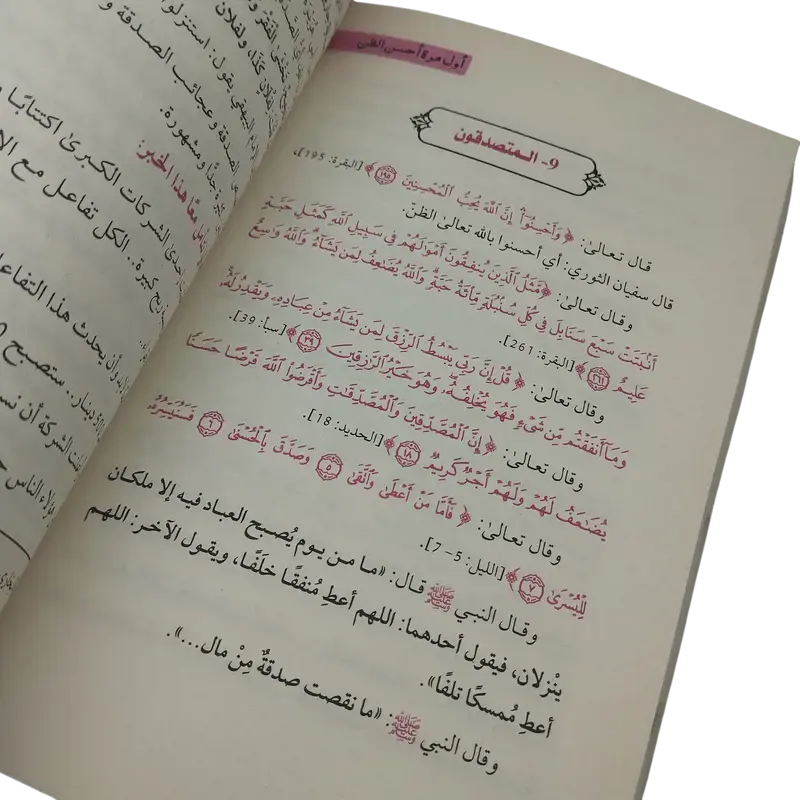 أول مرة أحسن الظن
9- المتصدقون
قال تعالى: ﴿وَأَحْسِنُوٓا۟ إِنَّ ٱللَّهَ يُحِبُّ ٱلْمُحْسِنِينَ ١٩٥﴾ [البقرة: 195].
قال سفيان الثوري: أي أحسنوا بالله تعالىٰ الظنّ.
وقال تعالىٰ: ﴿مَّثَلُ ٱلَّذِينَ يُنفِقُونَ أَمْوَٰلَهُمْ فِى سَبِيلِ ٱللَّهِ كَمَثَلِ حَبَّةٍ
أَنۢبَتَتْ سَبْعَ سَنَابِلَ فِى كُلِّ سُنۢبُلَةٍ مِّا۟ئَةُ حَبَّةٍ وَٱللَّهُ يُضَٰعِفُ لِمَن يَشَآءُ وَٱللَّهُ وَٰسِعٌ
عَلِيمٌ ٢٦١﴾ [البقرة: 261].
وقال تعالىٰ: ﴿قُلْ إِنَّ رَبِّى يَبْسُطُ ٱلرِّزْقَ لِمَن يَشَآءُ مِنْ عِبَادِهِۦ وَيَقْدِرُ لَهُۥ
وَمَآ أَنفَقْتُم مِّن شَىْءٍ فَهُوَ يُخْلِفُهُۥ وَهُوَ خَيْرُ ٱلرَّٰزِقِينَ ٣٩﴾ [سبأ: 39].
وقال تعالىٰ: ﴿إِنَّ ٱلْمُصَّدِّقِينَ وَٱلْمُصَّدِّقَٰتِ وَأَقْرَضُوا۟ ٱللَّهَ قَرْضًا حَسَنًا
يُضَٰعَفُ لَهُمْ وَلَهُمْ أَجْرٌ كَرِيمٌ ١٨﴾ [الحديد: 18].
وقال تعالىٰ: ﴿فَأَمَّا مَنْ أَعْطَىٰ وَٱتَّقَىٰ ٥ وَصَدَّقَ بِٱلْحُسْنَىٰ ٦ فَسَنُيَسِّرُهُۥ
لِلْيُسْرَىٰ ٧﴾ [الليل: 5– 7].
وقال النبي ﷺ قال: «ما من يوم يُصبح العباد فيه إلا ملكان
ينْزلان، فيقول أحدهما: اللهم أعطِ مُنفقًا خلَفًا، ويقول الآخر: اللهم
أعطِ مُمسكًا تلفًا».
وقال النبي ﷺ: «ما نقصت صدقةٌ مِنْ مال...».
كذا، ولفلان
البيهقي يقول: استنزلوا
الصدقة وعجائب الصدقة و
جدًا ومشهورة.
معًا هذا الخبر:
الشركات الكبرىٰ اكتتابًا
كبيرة.. الكل تفاعل مع
وأن يحدث هذا التفاعل
دينار.. ستصبح
الشركة أن
الناس